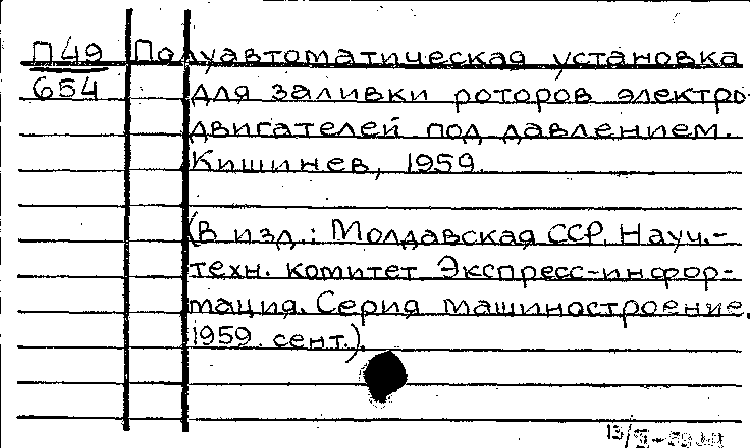 П49 Полуавтоматическая установка
654 для заливки роторов электро-
двигателей под давлением.
Кишинев, 1959.
(В изд.: Молдавская ССР. Науч.-
техн. комитет Экспресс-инфор-
мация. Серия машиностроение.
1959. сент.).